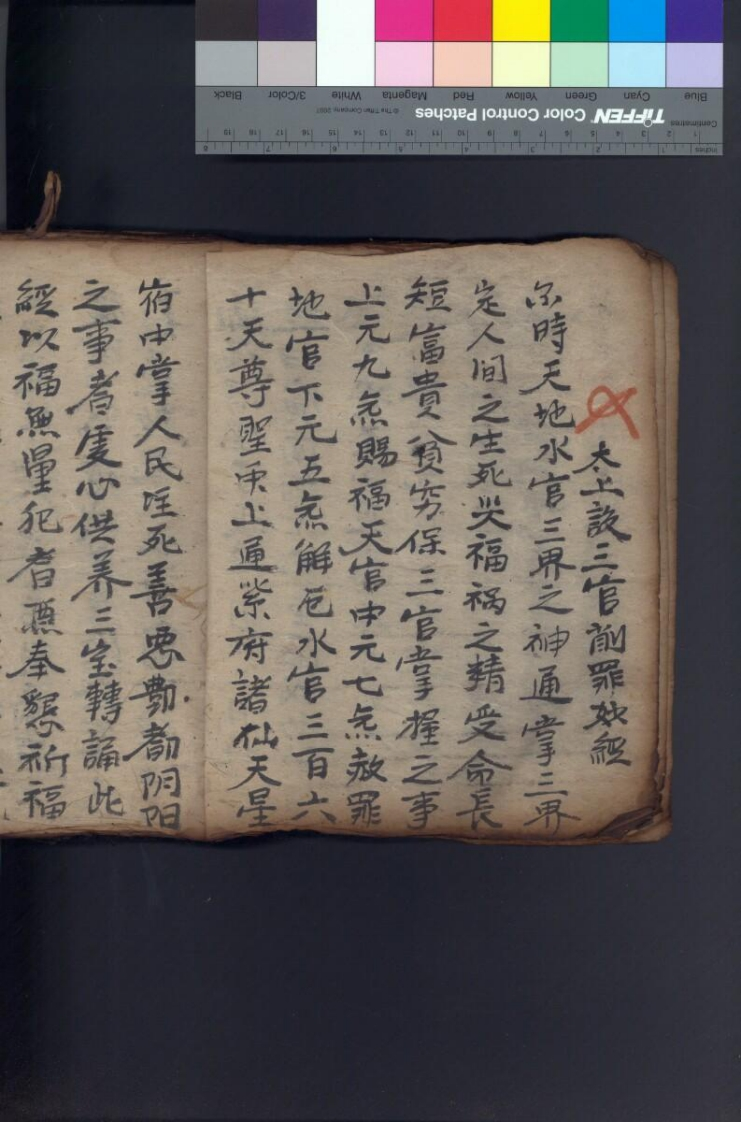 太上説三官削罪妙經
尒時天地水官三界之神通掌三界
定人间之生死災福祸之精受命長
短富貴貧穷保三官掌握之事
上元九炁賜福天官中元七炁赦罪
地官下元五炁解厄水官三百六
十天尊聖 上通紫府諸仙天星
宿中掌人民 死善悪 都阴阳
之事者虔心供养三宝轉誦此
經以福無量犯者 奉懇祈福
Blue Cyan Green Yellow Red Magenta White 3/Color Black
TIFFEN Color Control Patches © The Tiffen Company, 2007
Centimetres
Inches